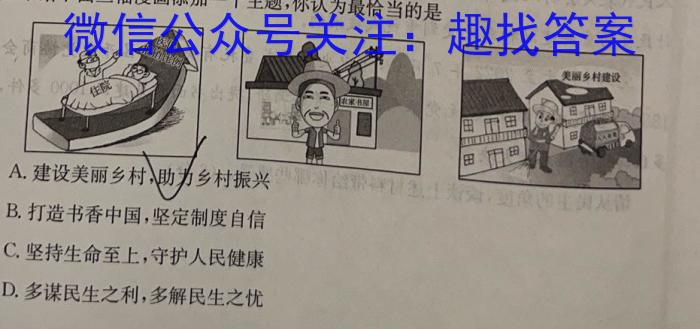 三幅漫画添加一个主题,你认为最恰当的是
微信公众号关注：趣找答案
住院
农家书屋
美丽乡村建设
A. 建设美丽乡村,助力乡村振兴
B. 打造书香中国,坚定制度自信
C. 坚持生命至上,守护人民健康
D. 多谋民生之利,多解民生之忧